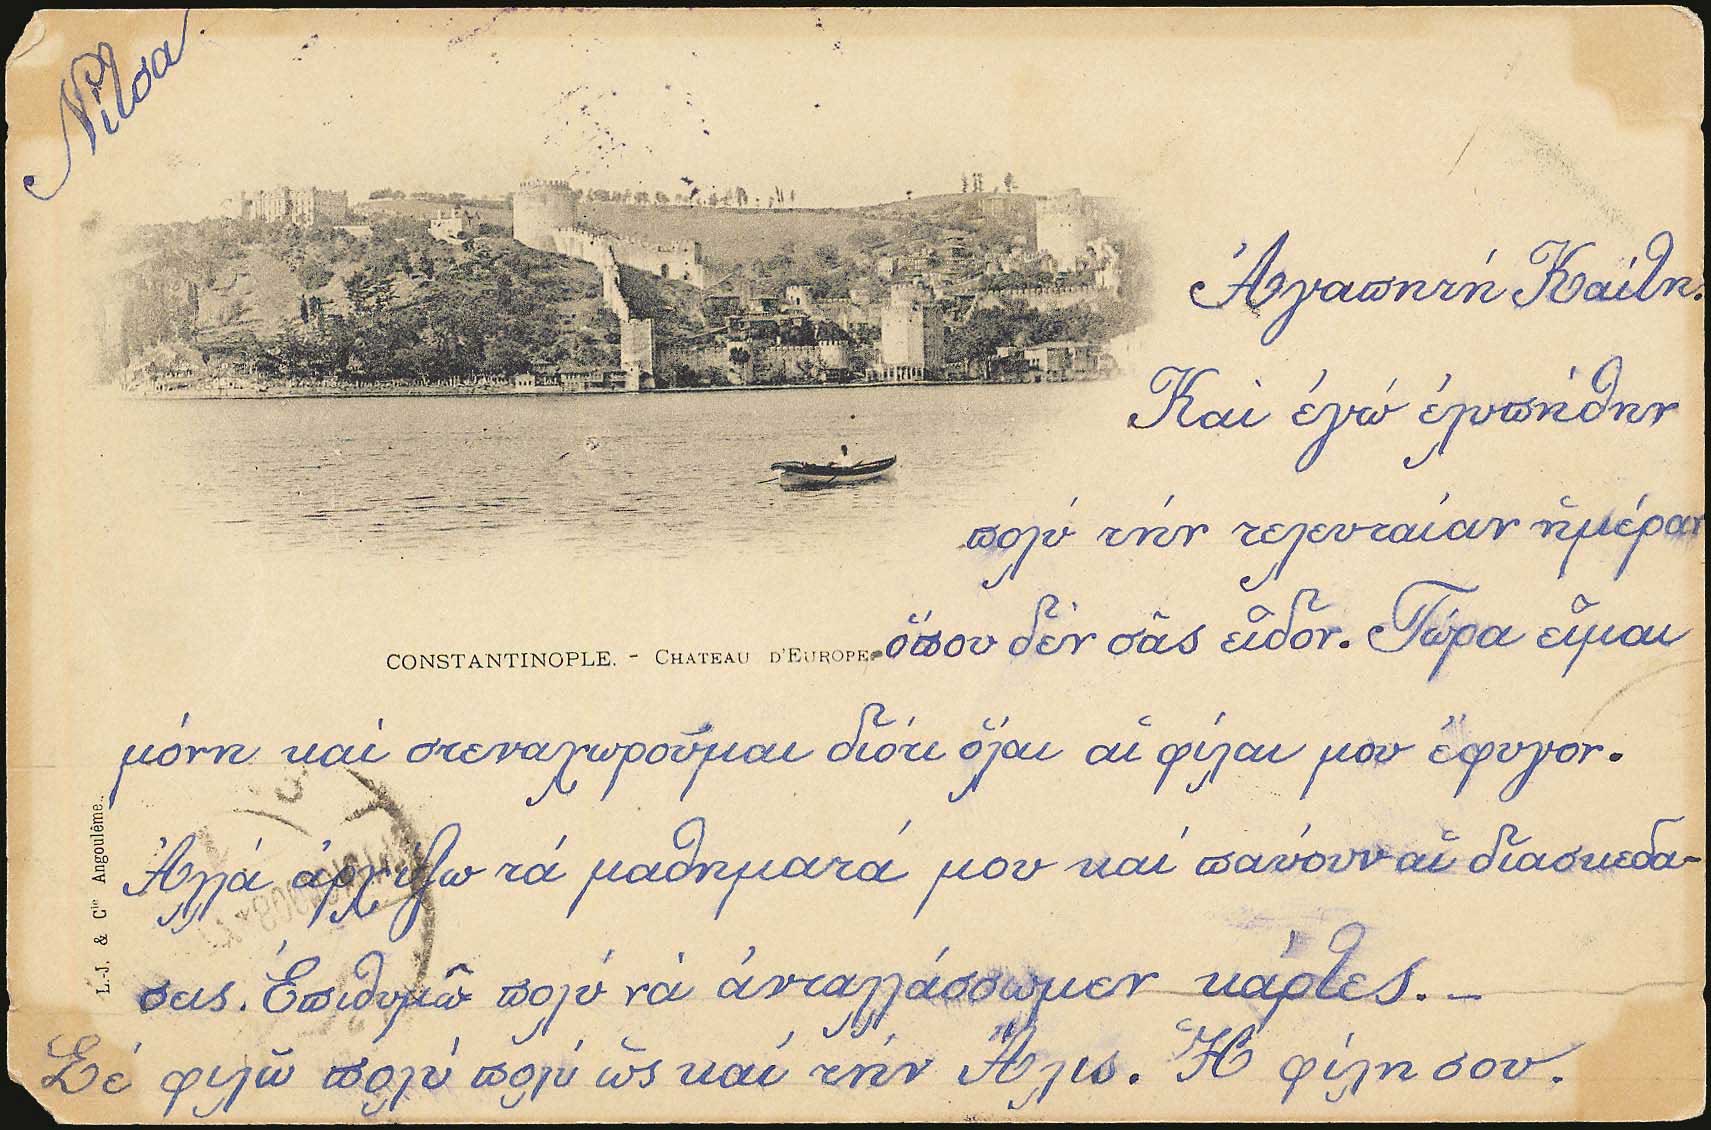 Νίτσα
Ἀγαπητή Καίτη.
Καὶ ἐγώ ἐλυπήθην
πολύ τήν τελευταίαν ἡμέραν
CONSTANTINOPLE. - CHATEAU D'EUROPE.
ὅπου δὲν σᾶς εἶδον. Τώρα εἶμαι
μόνη καί στεναχωροῦμαι διότι ὅλαι αἱ φίλαι μου ἔφυγον.
Ἀλλά ἀρχίζω τά μαθήματά μου καί παύουν αἱ διασκεδα-
σεις. Ἐπιθυμῶ πολύ νὰ ἀνταλλάσσωμεν κάρτες. _
Σέ φιλῶ πολύ πολύ ὡς καί τήν Ἄλις. Ἡ φίλη σου.
L.-J. & Cie Angoulême.